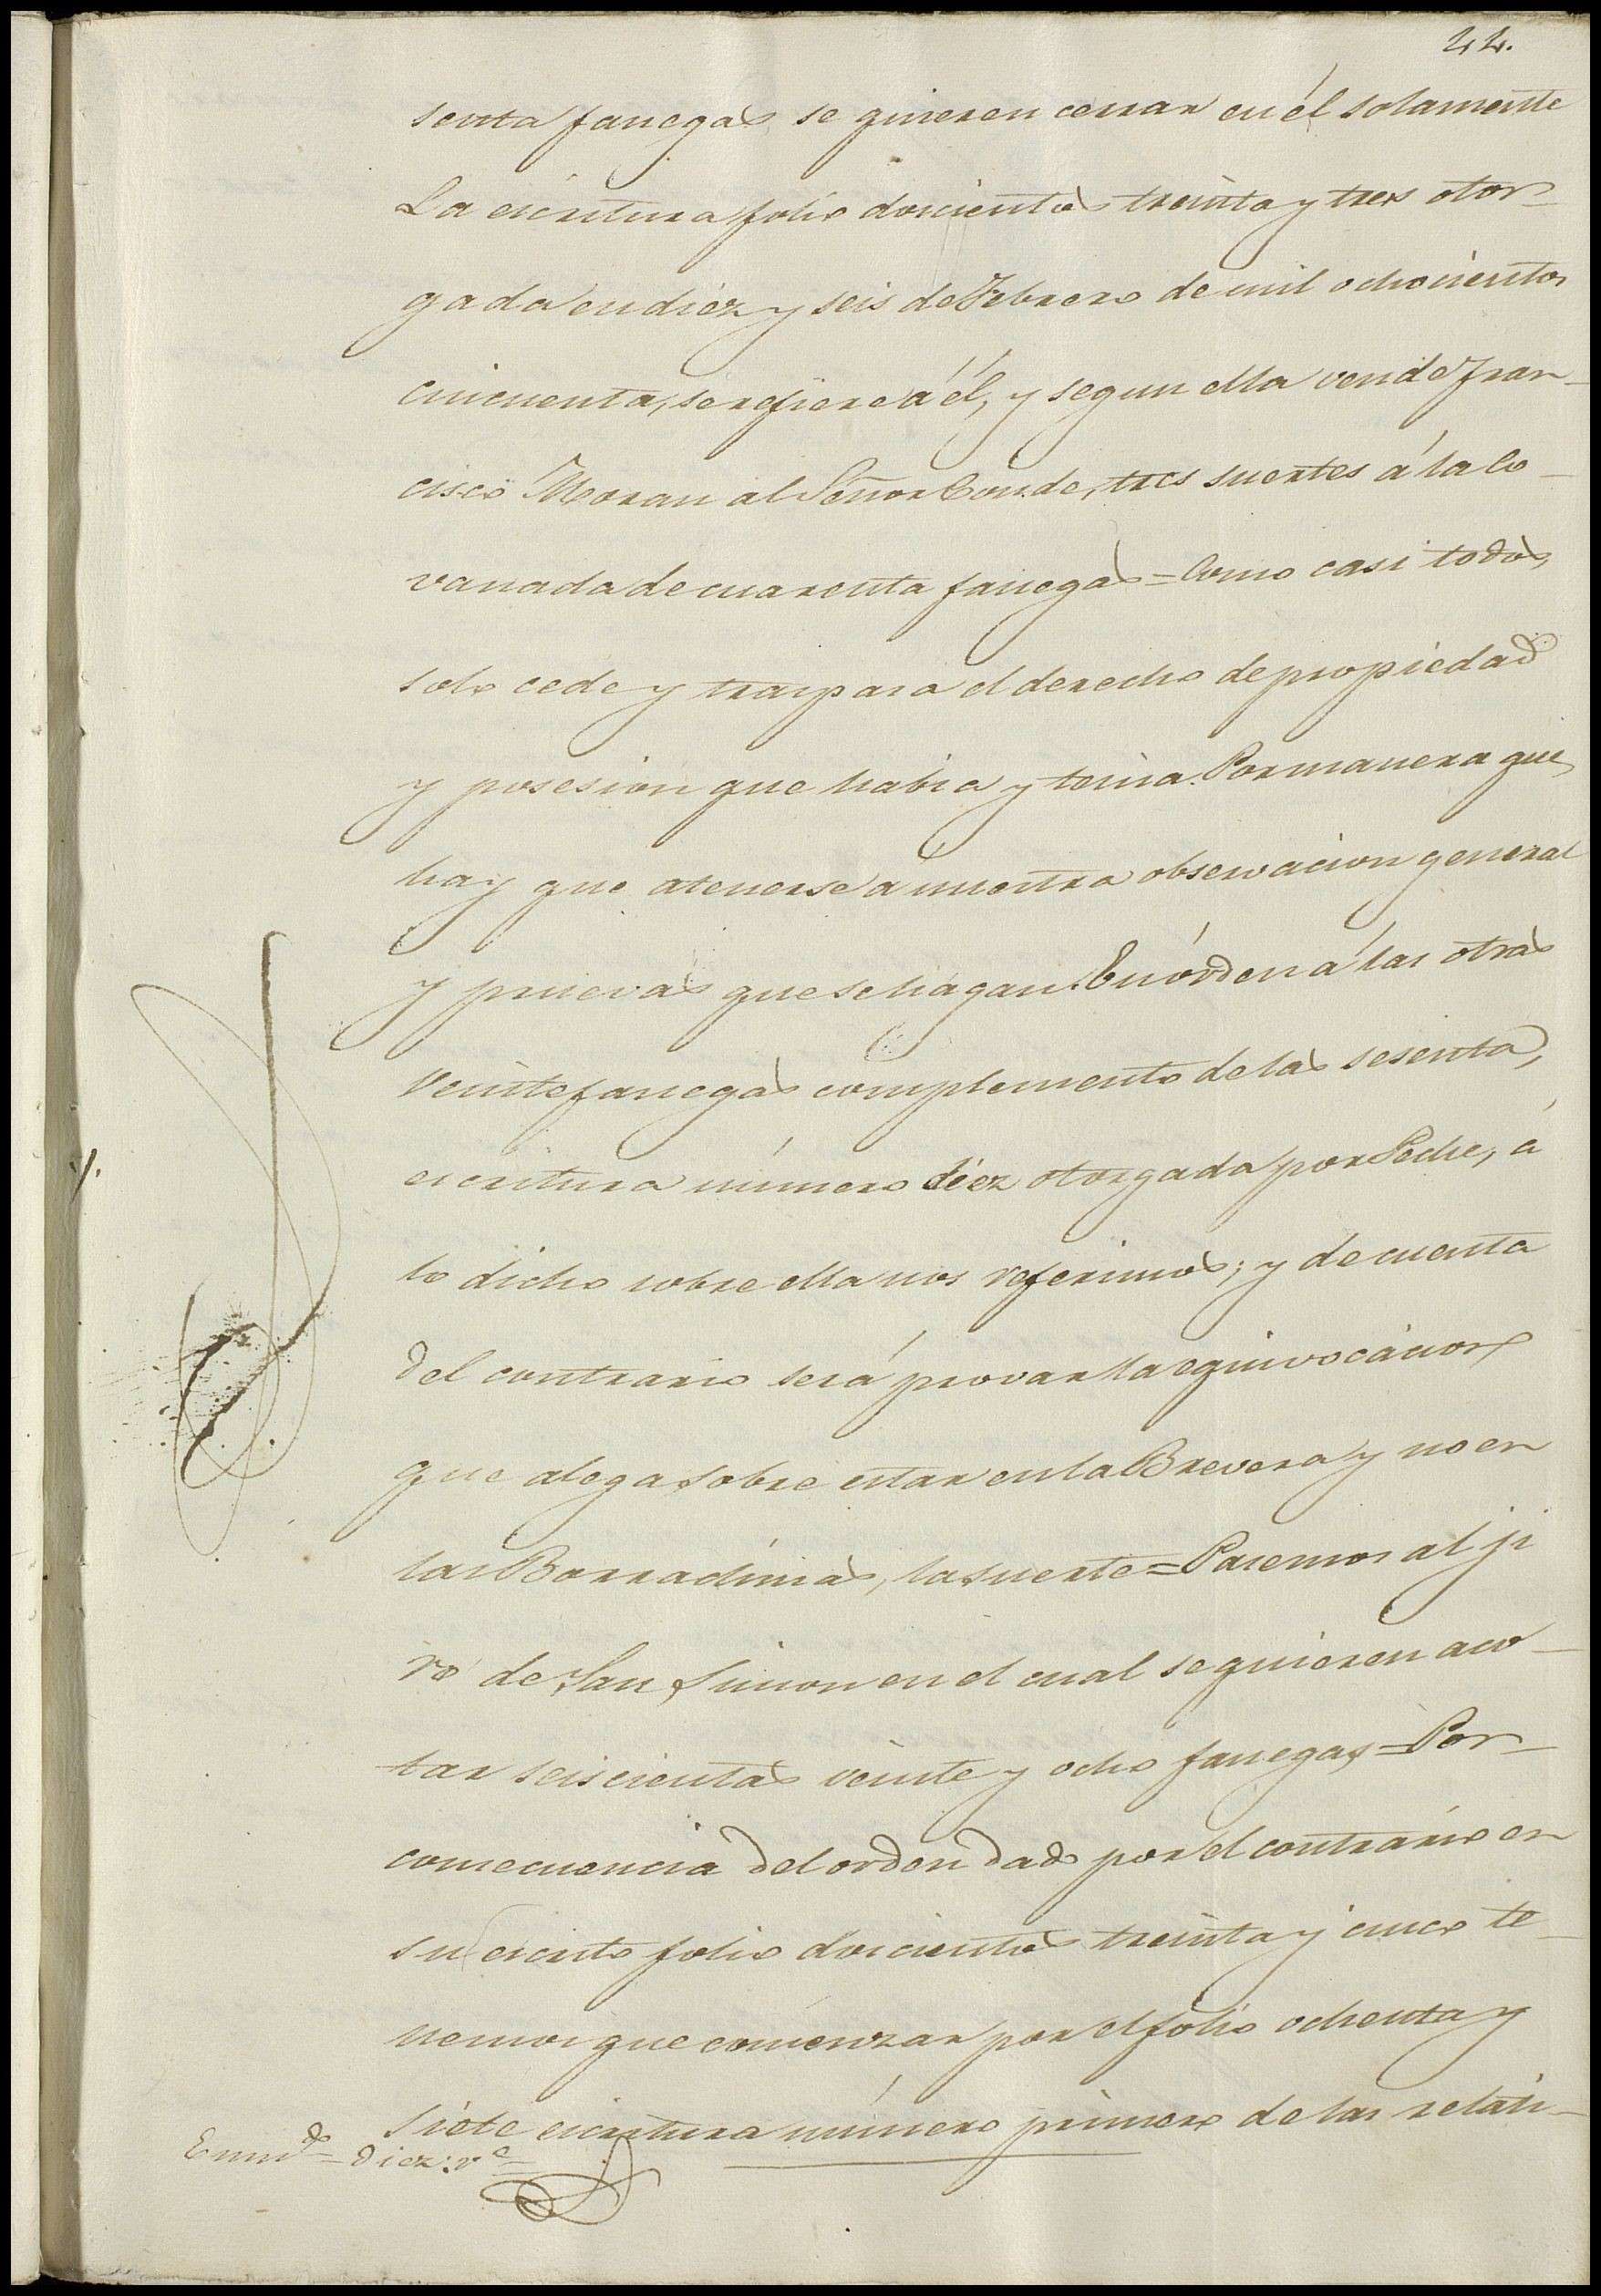 44.
senta fanegas se quieren cerrar en él solamente
La escritura folio doscientos treinta y tres otor-
gada en diez y seis de Febrero de mil ochocientos
cincuenta, se refiere á él, y segun ella vende Fran-
cisco Moran al Señor Conde, tres suertes á la Co-
vanada de cuarenta fanegas = Como casi todos,
solo cede y traspasa el derecho de propiedad
y posesion que habia y tenia. Por manera que,
hay que atenerse a nuestra observacion general
y pruevas que se hagan. En órden á las otras
veinte fanegas complemento de las sesenta,
escritura número diez otorgada por Peche, á
lo dicho sobre ella nos referimos; y de cuenta
del contrario será provar la equivocacion
que alega sobre estar en la Brevera y no en
las Borradinas, la suerte = Pasemos al ji
ro de San Simon en el cual se quieren aco-
tar seiscientas veinte y ocho fanegas = Por
consecuencia del orden dado por el contrario en
su escrito folio doscientos treinta y cinco te-
nemos que comenzar por el folio ochenta y
siete escritura número primero de las relati-
Enmdo = diez: ve =